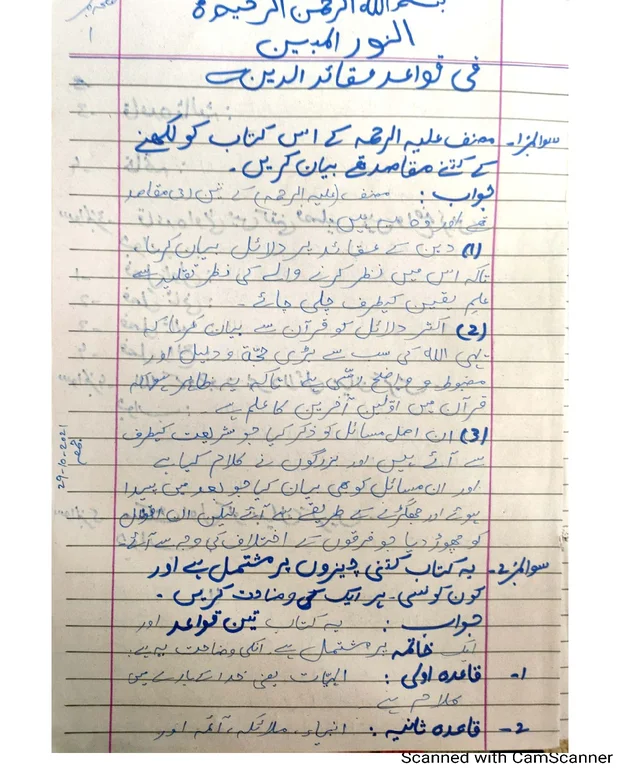 بسم الله الرحمن الرحيم
1
النور المبین
فی قواعد عقائد الدین
سوال نمبر 1- مصنف علیہ الرحمہ کے اس کتاب کو لکھنے
کے کتنے مقاصد تھے بیان کریں۔
جواب : مصنف (علیہ الرحمہ) کے تین (3) مقاصد
تھے
(1) دین کے عقائد پر دلائل بیان کرنا
تاکہ اس میں نظر کرنے والے کی نظر تقلید سے
علم یقین کیطرف چلی جائے۔
(2) اکثر دلائل کو قرآن سے بیان کرنا کہ
یہی اللہ کی سب سے بڑی حجۃ و دلیل اور
مضبوط و واضح رسّی ہے تاکہ یہ ظاہر ہو کہ
قرآن میں اوّلین آخرین کا علم ہے
(3) ان اصل مسائل کو ذکر کیا جو شریعت کیطرف
سے آئے ہیں اور بزرگوں نے کلام کیا ہے
اور ان مسائل کو بھی بیان کیا جو بعد میں پیدا
ہوئے اور جھگڑے کے طریقے سے آئے لیکن ان اقوال
کو چھوڑ دیا جو فرقوں کے اختلاف کی وجہ سے آئے۔
29-10-2021
سوال نمبر 2- یہ کتاب کتنی چیزوں پر مشتمل ہے اور
کون کونسی۔ ہر ایک کی وضاحت کریں۔
جواب : یہ کتاب تین قواعد اور
ایک خاتمہ پر مشتمل ہے۔ انکی وضاحت یہ ہے:
1- قاعدہ اولی : الہیّات یعنی خدا کے بارے میں
کلام ہے
2- قاعدہ ثانیہ : انبیاء، ملائکہ، آئمہ اور
Scanned with CamScanner